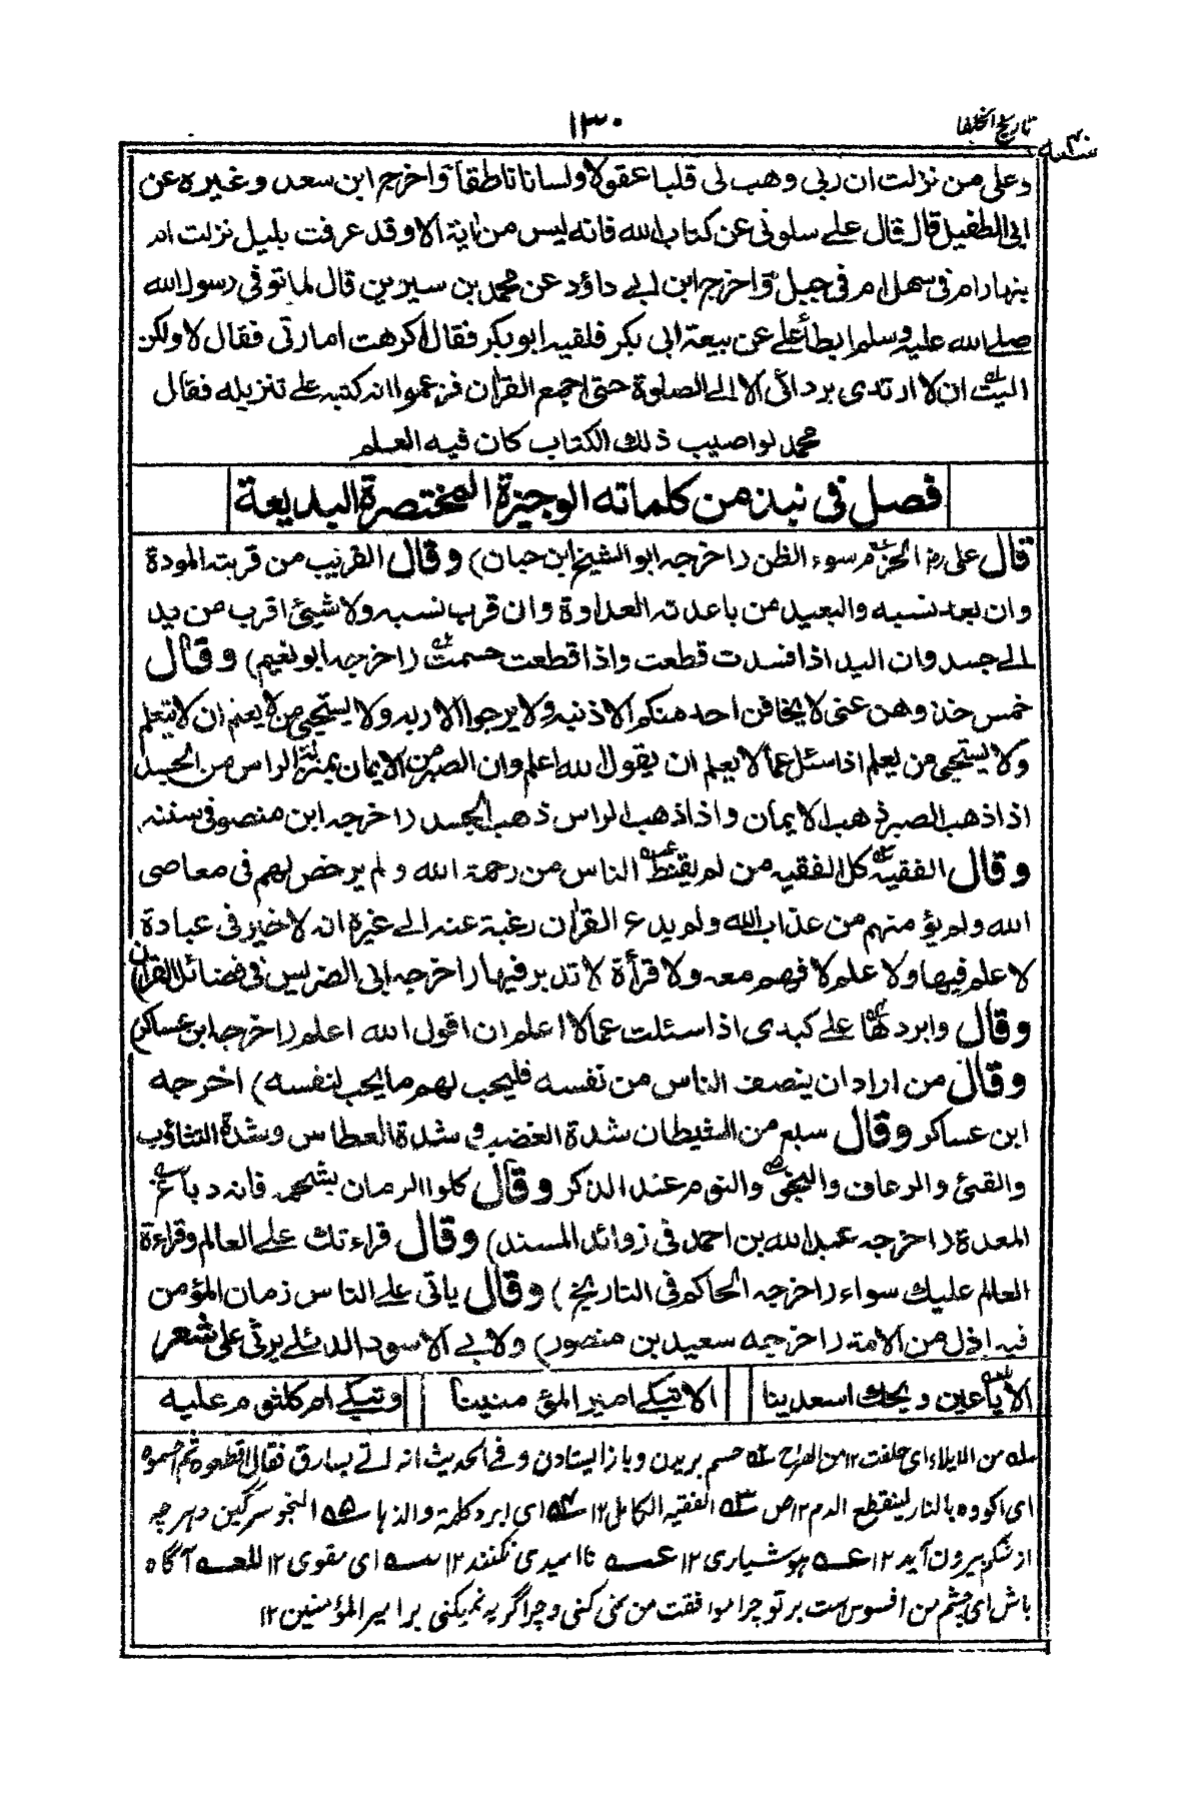 تاريخ الخلفا
١٣٠
سنه ٤٠
وعلى من نزلت ان ربى وهب لى قلبا عقولا ولسانا ناطقا واخرج ابن سعد وغيره عن
ابى الطفيل قال قال على سلونى عن كتاب الله فانه ليس من اية الا وقد عرفت بليل نزلت ام
بنهار ام فى سهل ام فى جبل واخرج ابن ابى داؤد عن محمد بن سيرين قال لما توفى رسول الله
صلى الله عليه وسلم ابطأ على عن بيعة ابى بكر فلقيه ابو بكر فقال اكرهت امارتى فقال لا ولكن
اليت ان لا ارتدى بردائى الا الى الصلوة حتى اجمع القران فزعموا انه كتبه على تنزيله فقال
محمد لو اصيب ذلك الكتاب كان فيه العلم
فصل فى نبذ من كلماته الوجيزة المختصرة البديعة
قال على رض الحزم سوء الظن (اخرجه ابو الشيخ ابن حبان) وقال القريب من قربته المودة
وان بعد نسبه والبعيد من باعدته العداوة وان قرب نسبه ولا شيئ اقرب من يد
الى جسد وان اليد اذا فسدت قطعت واذا قطعت حسمت (اخرجه ابو نعيم) وقال
خمس خذوهن عنى لا يخافن احد منكم الا ذنبه ولا يرجوا الا ربه ولا يستحيى من لا يعلم ان لا يتعلم
ولا يستحيى من يعلم اذا سئل عما لا يعلم ان يقول الله اعلم وان الصبر من الايمان بمنزلة الراس من الجسد
اذا ذهب الصبر ذهب الايمان واذا ذهب الراس ذهب الجسد (اخرجه ابن منصور فى سننه
وقال الفقيه كل الفقيه من لم يقنط الناس من رحمة الله ولم يرخص لهم فى معاصى
الله ولم يؤمنهم من عذاب الله ولم يدع القران رغبة عنه الى غيره انه لا خير فى عبادة
لا علم فيها ولا علم لا فهم معه ولا قرأة لا تدبر فيها (اخرجه ابى الضريس فى فضائل القران)
وقال وابردها على كبدى اذا سئلت عما لا اعلم ان اقول الله اعلم (اخرجه ابن عساكر)
وقال من اراد ان ينصف الناس من نفسه فليحب لهم ما يحب لنفسه) اخرجه
ابن عساكر وقال سبع من الشيطان شدة الغضب و شدة العطاس وشدة التثاؤب
والقئ والرعاف والنجوى والنوم عند الذكر وقال كلوا الرمان بشحمه فانه دباغ
المعدة (اخرجه عبد الله بن احمد فى زوائد المسند) وقال قراءتك على العالم وقراءة
العالم عليك سواء (اخرجه الحاكم فى التاريخ) وقال ياتى على الناس زمان المؤمن
فيه اذل من الامة (اخرجه سعيد بن منصور) ولابى الاسود الدئلى يرثى على شعر
الا يا عين ويحك اسعدينا || الا تبكى امير المؤمنينا || وتبكى ام كلثوم عليه
سله من الايلاء اى حلفت ١٢ من الصراح سله حسم بريدن وباز ايستادن وفى الحديث انه اتى بسارق فقال اقطعوه ثم احسموه
اى اكووه بالنار لينقطع الدم ١٢ ص سه الفقيه الكامل ١٢ سه اى ابرد كلمة والذ ها سه النجو سرگين وهرچه
از شكم بيرون آيد ١٢ عه هوشيارى ١٢ عه نا اميدى نكنند ١٢ سه اى مقوى ١٢ للعه آگاه
باش اى چشم من افسوس است بر تو چرا موافقت من نمى كنى وچرا گريه نميكنى بر امير المؤمنين ١٢